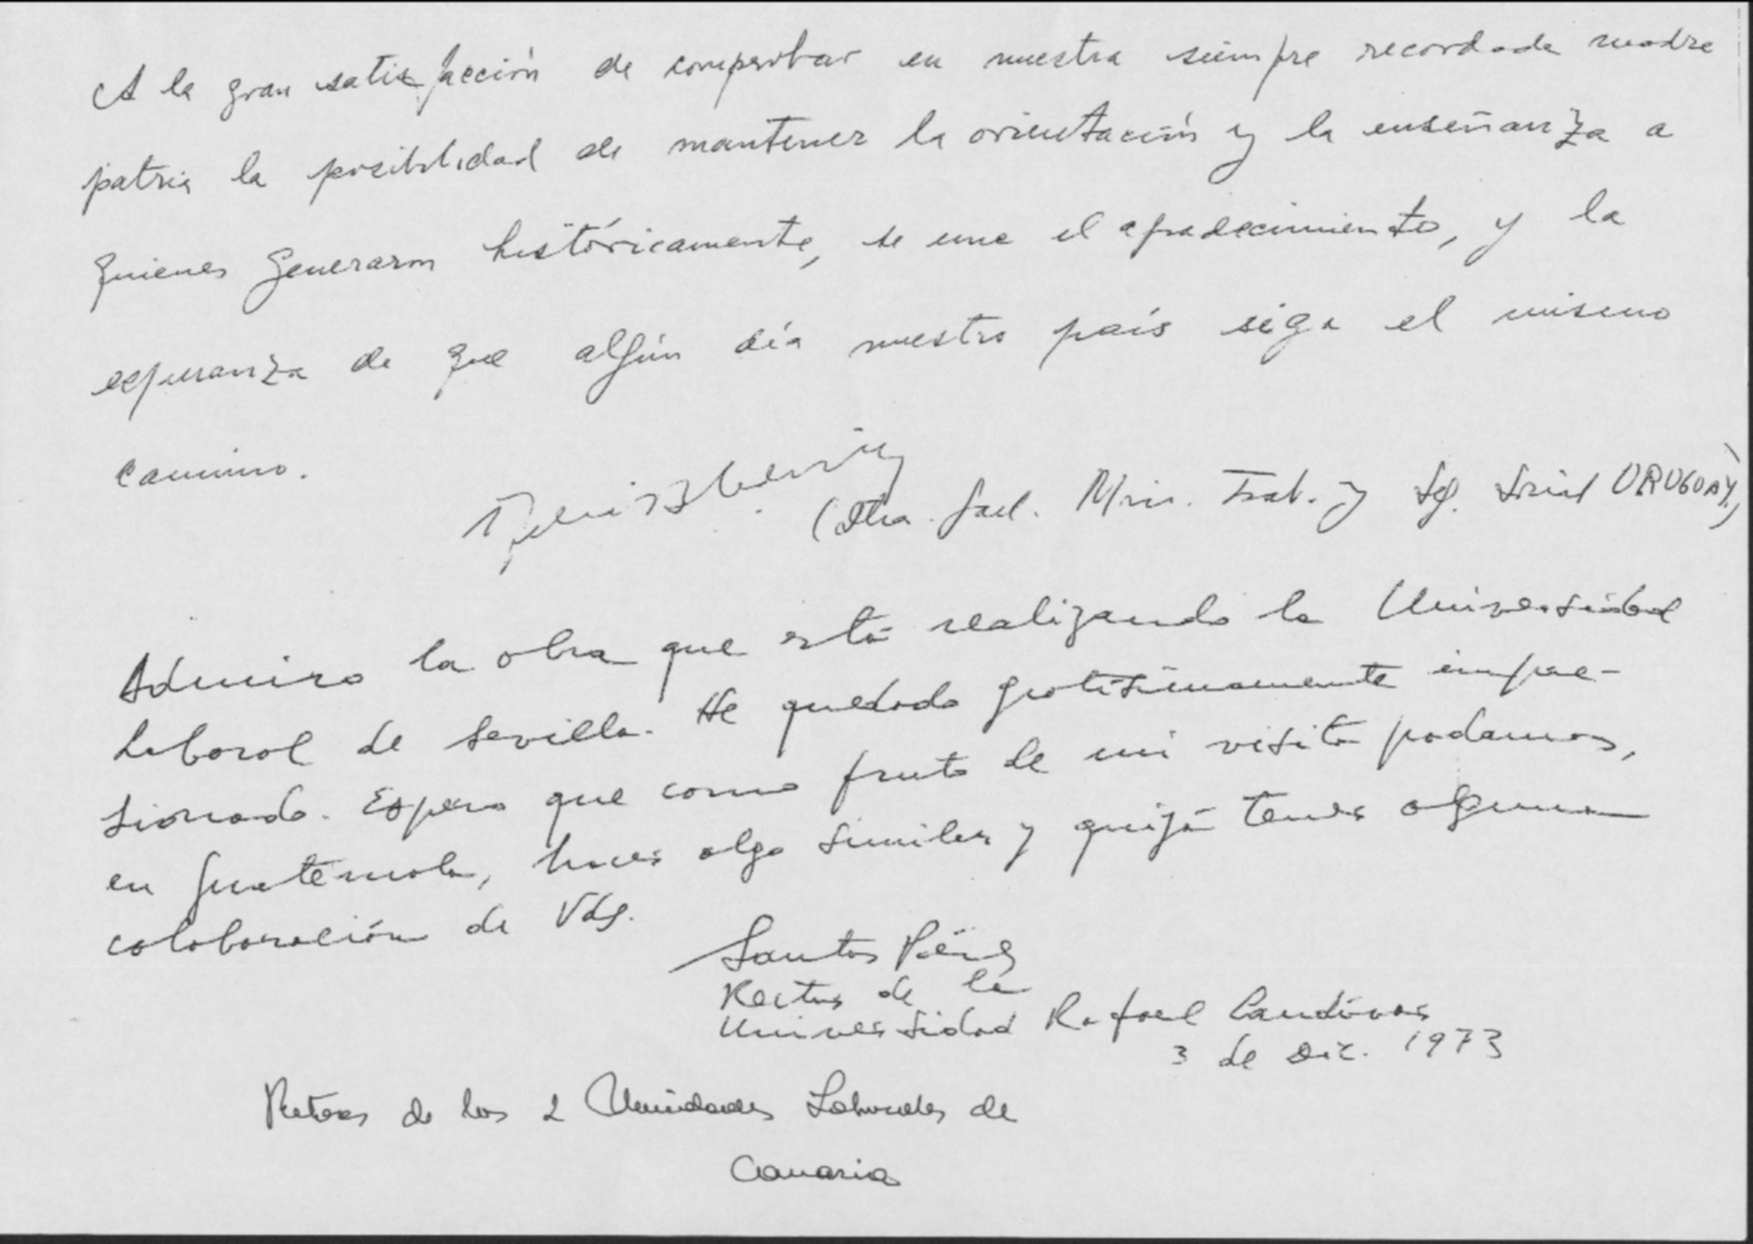 A la gran satisfacción de comprobar en nuestra siempre recordada madre
patria la posibilidad de mantener la orientación y la enseñanza a
quienes generaron históricamente, se une el agradecimiento, y la
esperanza de que algún día nuestro país siga el mismo
camino.
(Dtra. Gral. Min. Trab. y Sg. Social URUGUAY)
Admiro la obra que está realizando la Universidad
Laboral de Sevilla. He quedado gratísimamente impre-
sionado. Espero que como fruto de mi visita podamos,
en Guatemala, hacer algo similar y quizá tener alguna
colaboración de Vds.
Santos Pérez
Rector de la
Universidad Rafael Landívar
3 de Dic. 1973
Rectores de las 2 Universidades Laborales de
Canarias